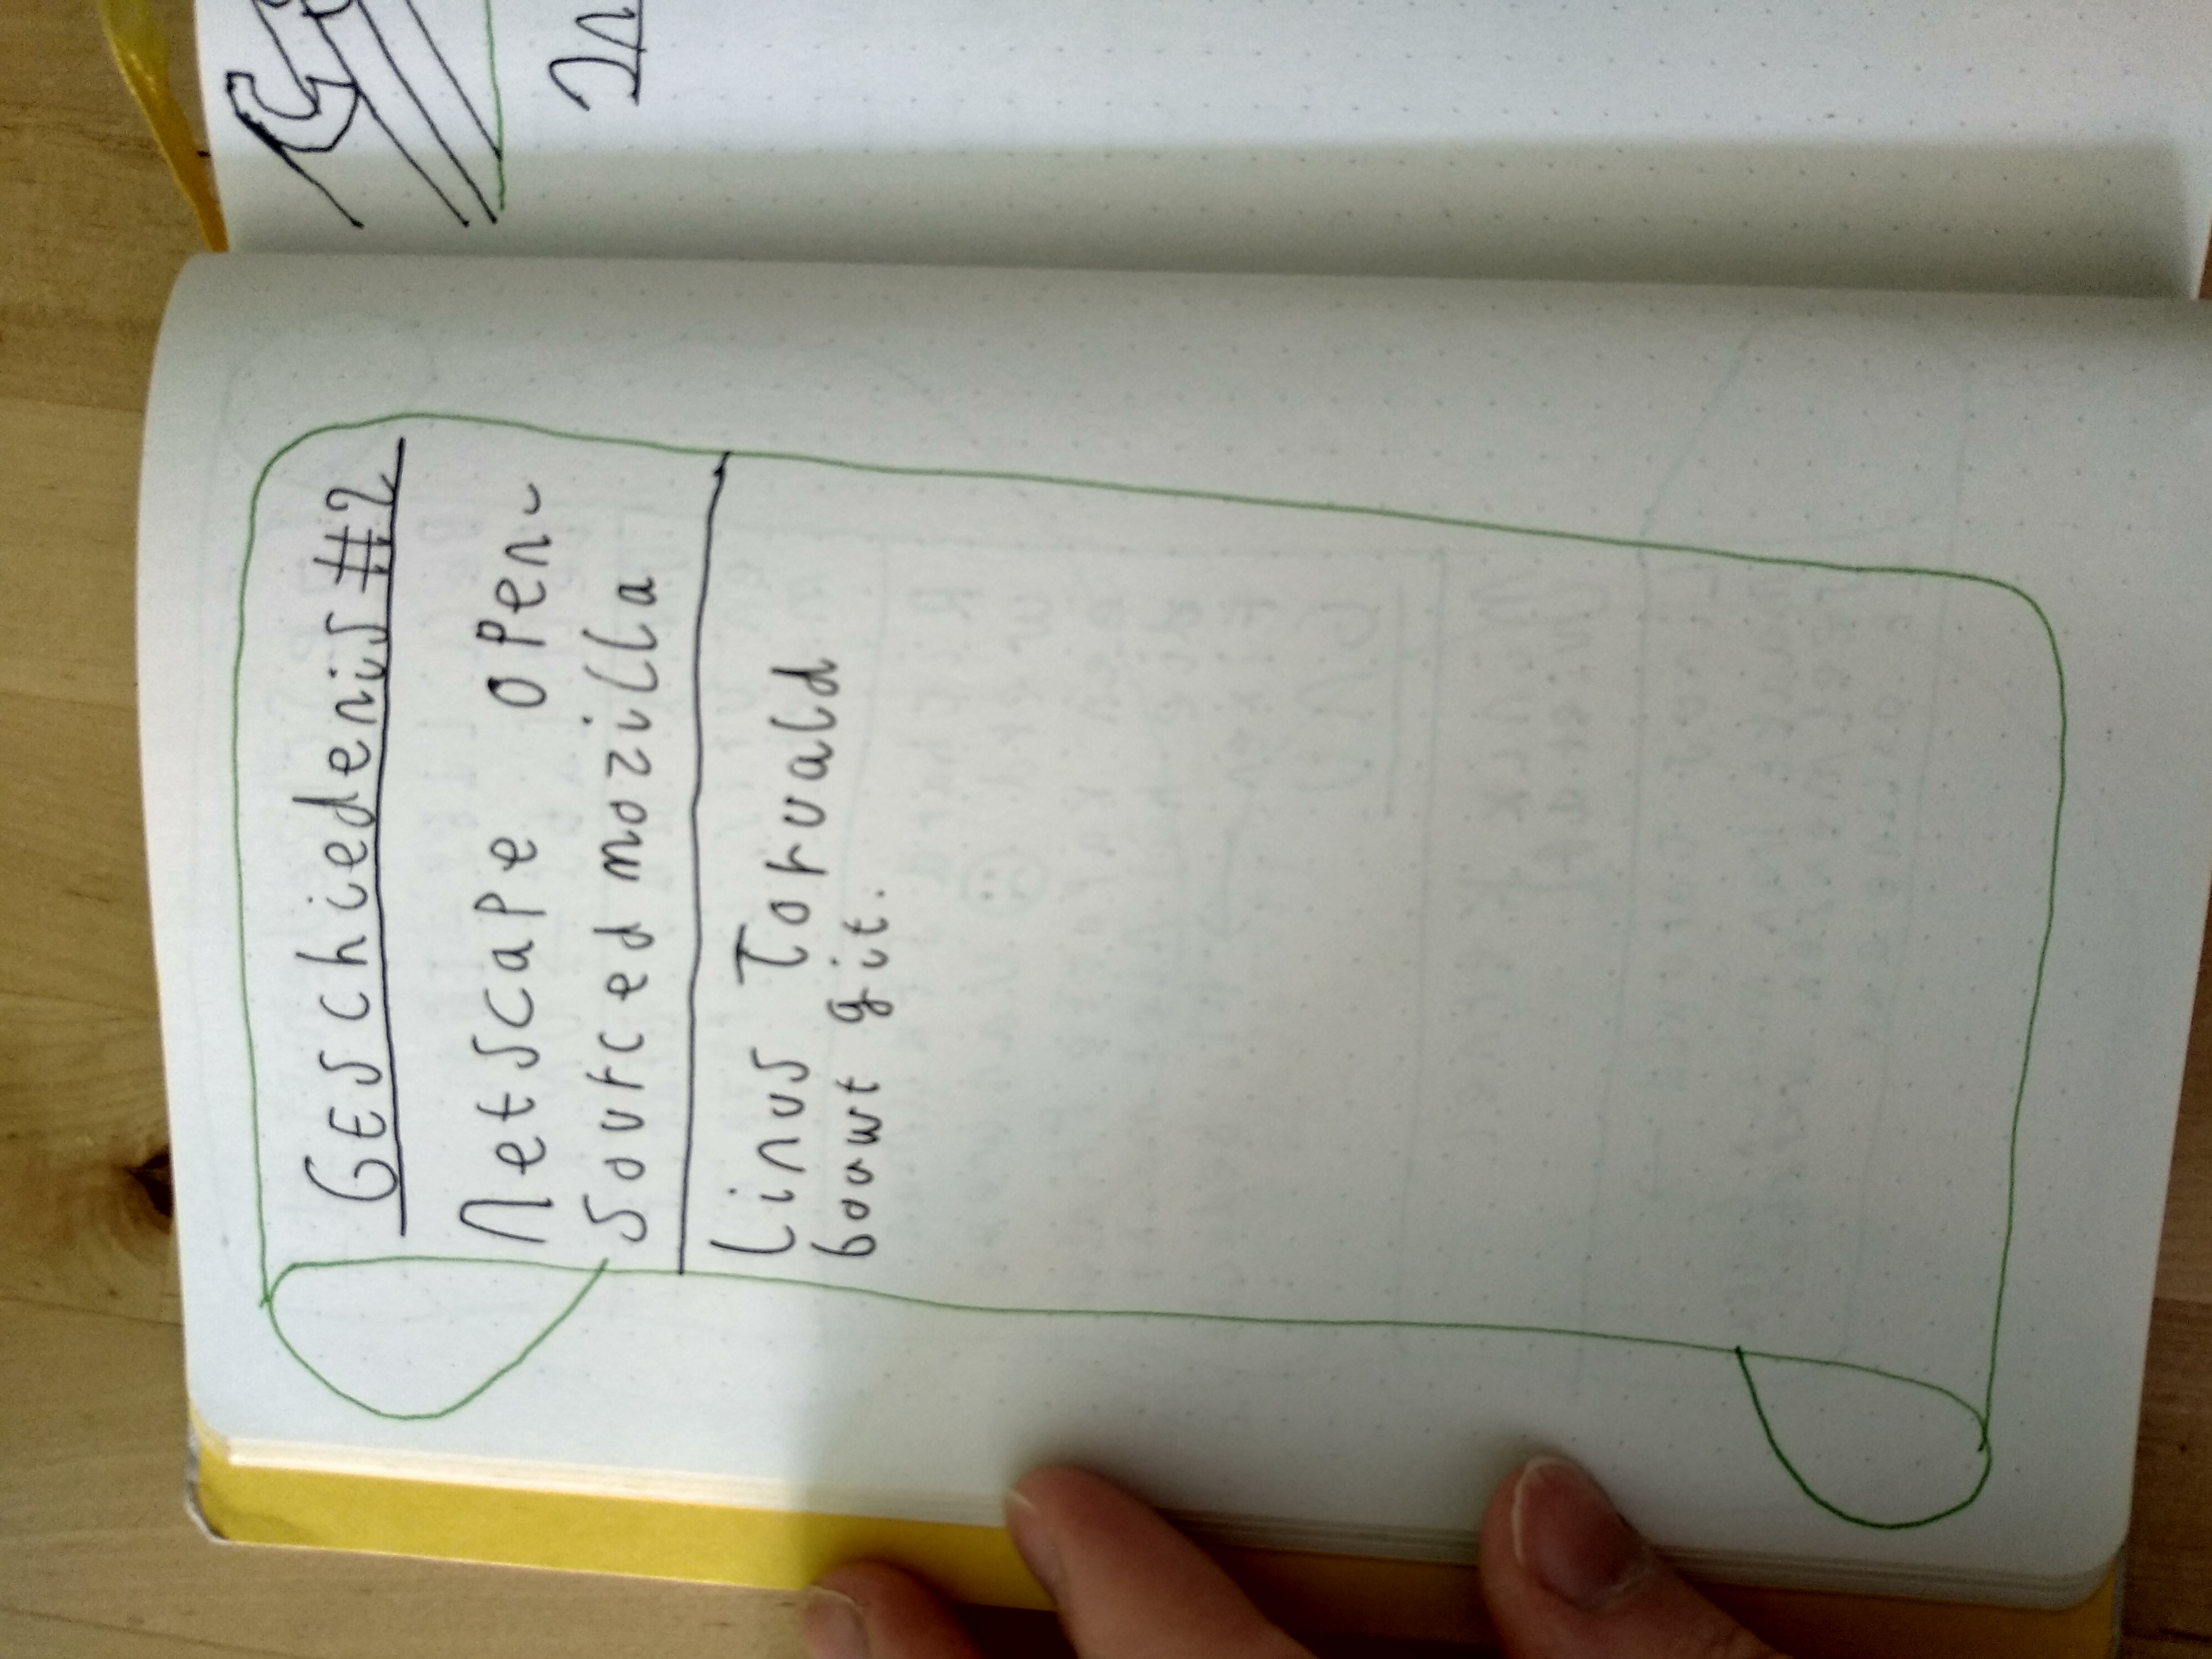 Geschiedenis #2
Netscape open-
sourced mozilla
Linus Torvald
bouwt git.
In